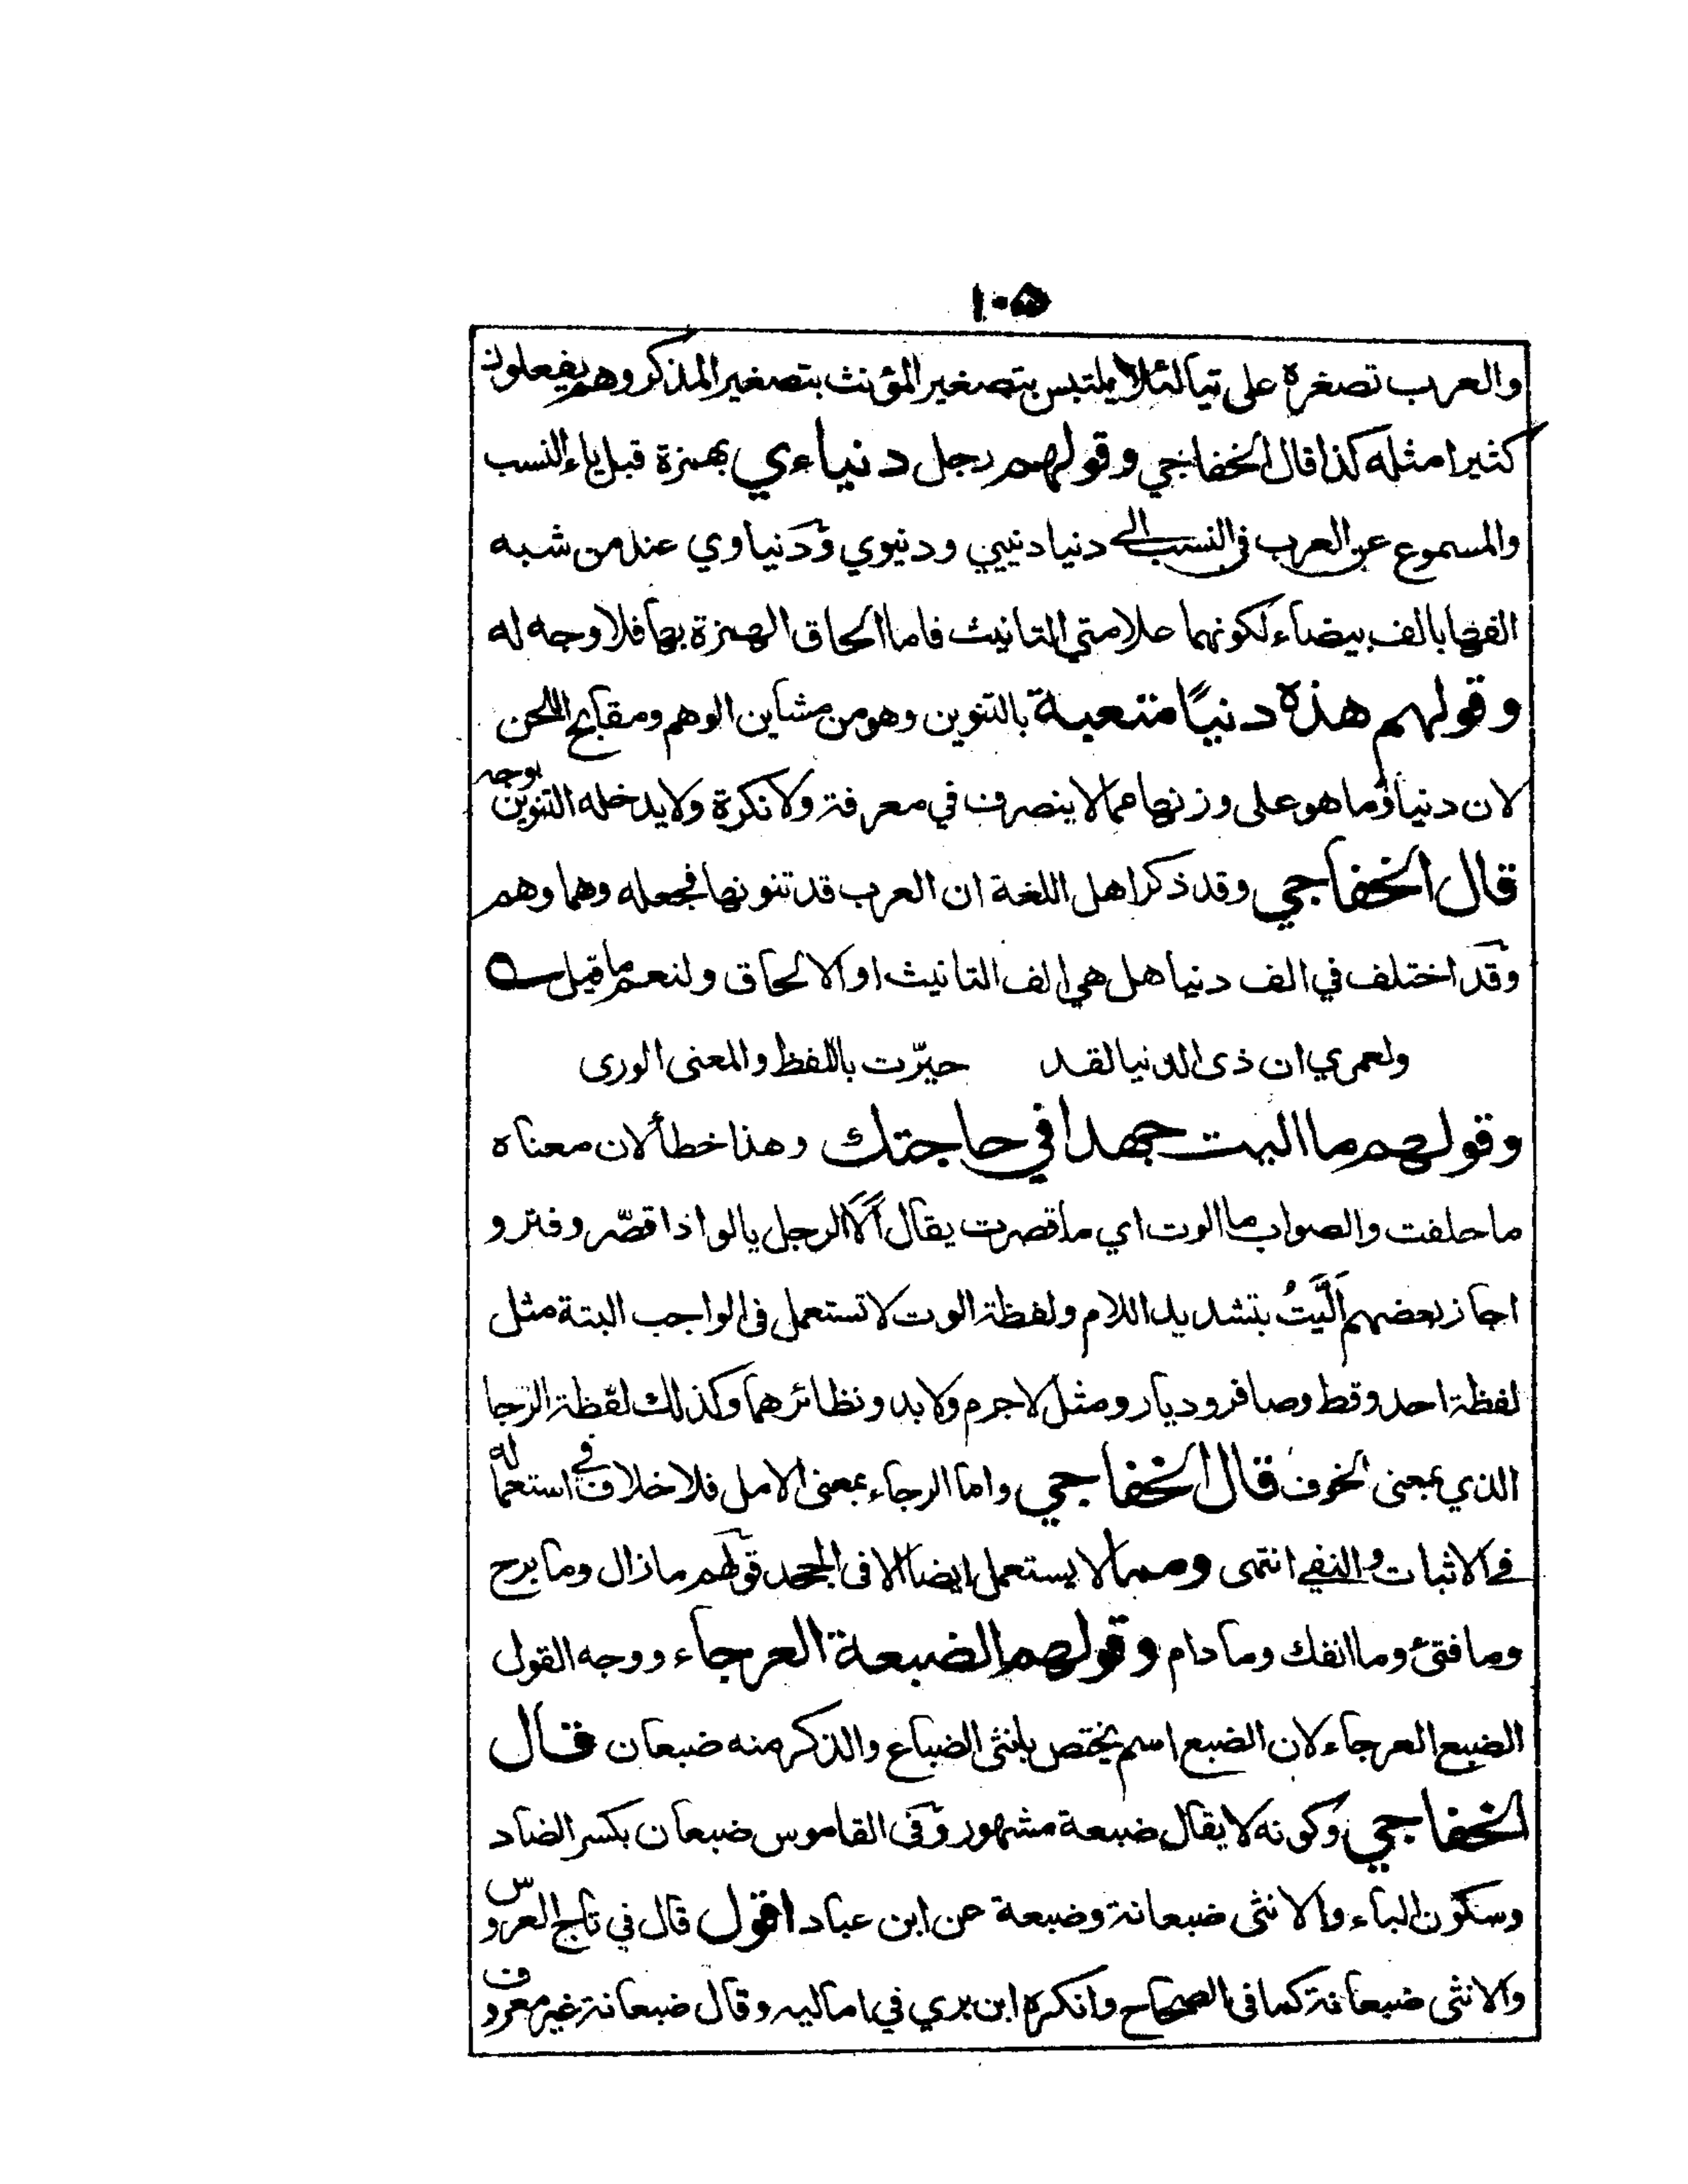 ١٠٥
والعرب تصغره على تيا لئلا يلتبس بتصغير المؤنث بتصغير المذكر وهم يفعلون
كثيرا مثله كذا قال الخفاجي وقولهم رجل دنياءي بهمزة قبل ياء النسب
والمسموع عن العرب في النسب الى دنيا دنيي ودنيوي ودنياوي عند من شبه
الفها بالف بيضاء لكونهما علامتي التانيث فاما الحاق الهمزة بها فلا وجه له
وقولهم هذه دنيًا متعبة بالتنوين وهو من مشاين الوهم ومقابح اللحن
لان دنيا وما هو على وزنها مما لا ينصرف في معرفة ولا نكرة ولا يدخله التنوين بوجه
قال الخفاجي وقد ذكر اهل اللغة ان العرب قد تنونها فجعله وهما وهم
وقد اختلف في الف دنيا هل هي الف التانيث او الالحاق ولنعم ما قيل
ولعمري ان ذى الدنيا لقد حيّرت باللفظ والمعنى الورى
وقولهم ما اليت جهدا في حاجتك وهذا خطأ لان معناه
ما حلفت والصواب ما الوت اي ما قصرت يقال ألا الرجل يالو اذا قصّر وفتر و
اجاز بعضهم اَلَّيتُ بتشديد اللام ولفظة الوت لا تستعمل في الواجب البتة مثل
لفظة احد وقط وصافر وديار ومثل لاجرم ولابد ونظائرهما وكذلك لفظة الرجا
الذي بمعنى الخوف قال الخفاجي واما الرجاء بمعنى الامل فلا خلاف في استعماله
في الاثبات والنفي انتهى ومما لا يستعمل ايضا الا في الجحد قولهم ما زال وما برح
وما فتئ وما انفك وما دام وقولهم الضبعة العرجاء ووجه القول
الضبع العرجاء لان الضبع اسم يختص بانثى الضباع والذكر منه ضبعان قال
الخفاجي وكونه لا يقال ضبعة مشهور وفى القاموس ضبعان بكسر الضاد
وسكون الباء والانثى ضبعانة وضبعة عن ابن عباد اقول قال في تاج العروس
والانثى ضبعانة كما فى الصحاح وانكره ابن بري في اماليه وقال ضبعانة غير معروف